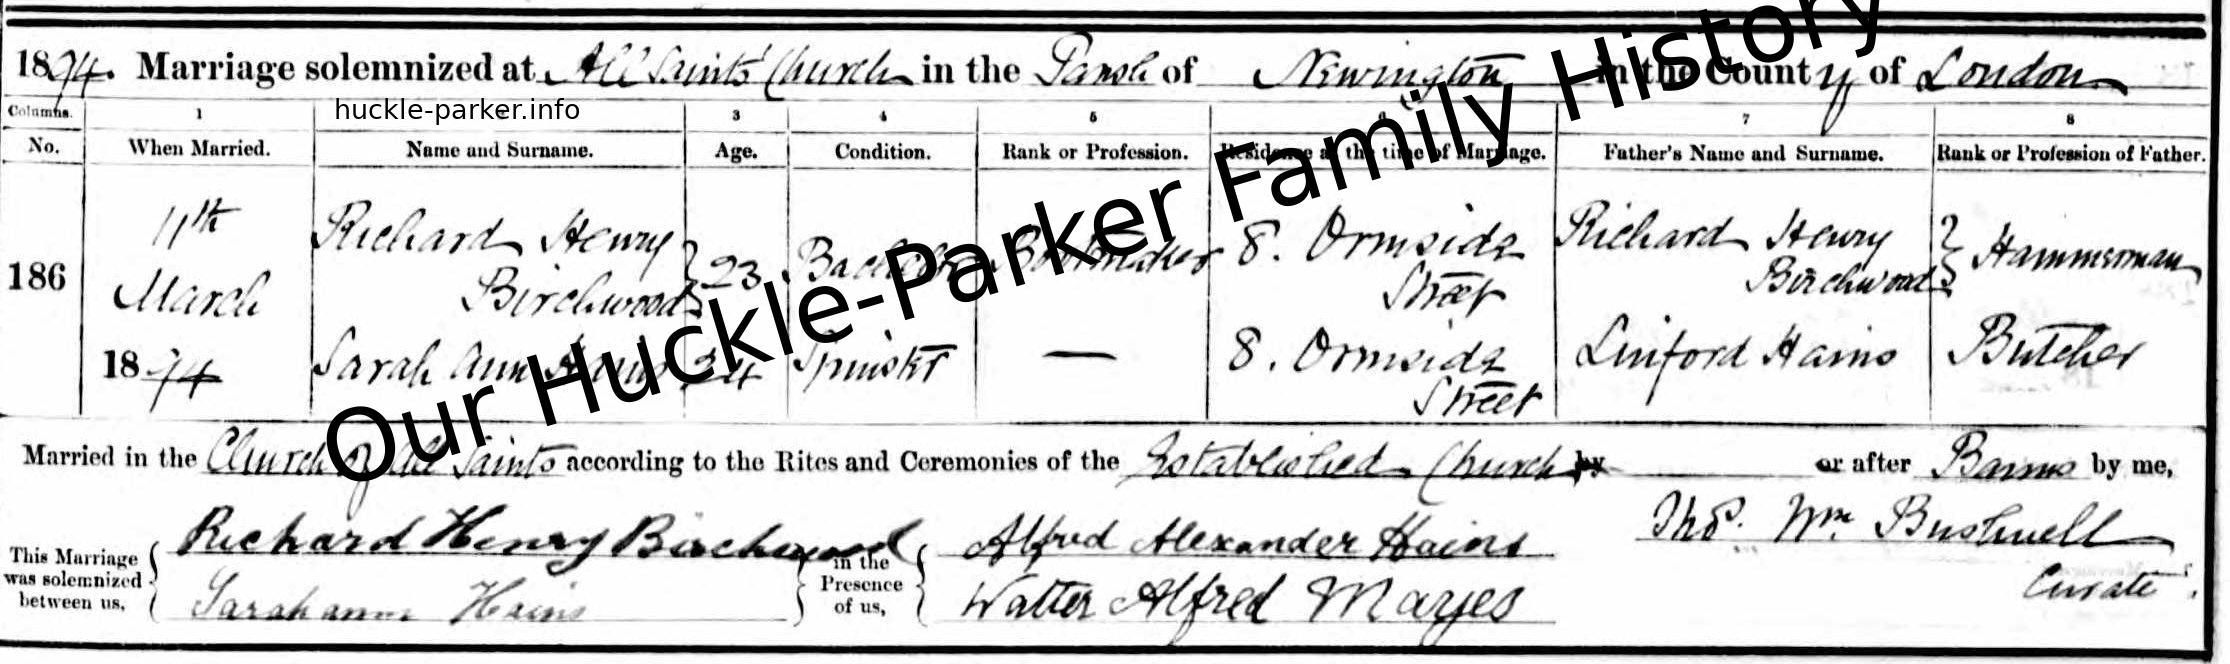 1894. Marriage solemnized at All Saints' Church in the Parish of Newington in the County of London
huckle-parker.info
Columns. 1 3 4 5 6 7 8
No. When Married. Name and Surname. Age. Condition. Rank or Profession. Residence at the time of Marriage. Father's Name and Surname. Rank or Profession of Father.
11th Richard Henry 8. Ormside Richard Henry
186 March Birchwood 23 Bachelor Bootmaker Street Birchwood Hammerman
1894 Sarah Ann Hains 24 Spinster — 8. Ormside Linford Hains Butcher
Street
Our Huckle-Parker Family History
Married in the Church of All Saints according to the Rites and Ceremonies of the Established Church by or after Banns by me,
This Marriage was solemnized between us,
Richard Henry Birchwood
Sarah ann Hains
in the Presence of us,
Alfred Alexander Hains
Walter Alfred Mayes
Thos. Wm. Bushnell
Curate.